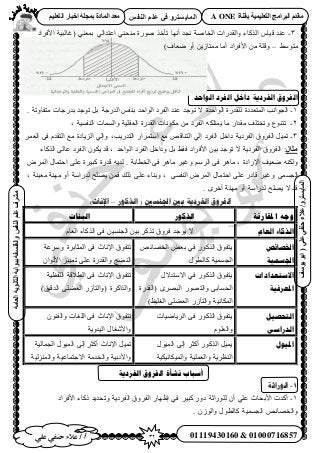 مقدم البرامج التعليمية بقناة A ONE
المايسترو في علم النفس
معد المادة بمجلة اخبار التعليم
٣- عند قياس الذكاء والقدرات الخاصة نجد أنها تأخذ صورة منحنى اعتدالي بمعنى ( غالبية الأفراد
متوسط – وقلة من الأفراد أما ممتازين أو ضعاف )
الفروق الفردية داخل الفرد الواحد
١- الجوانب المتعددة للقدرة الواحدة لا توجد عند الفرد الواحد بنفس الدرجة بل توجد بدرجات متفاوتة .
٢- تتنوع وتختلف مقدار ما يمتلكه الفرد من مكونات القدرة العقلية والسمات النفسية .
٣- تميل الفروق الفردية داخل الفرد إلى التناقص مع استمرار التدريب، وإلي الزيادة مع التقدم في العمر
مثال: الفروق الفردية لا توجد بين الأفراد فقط بل وداخل الفرد الواحد ، قد يكون الفرد عالي الذكاء
ولكنه ضعيف الإرادة ، ماهر في الرسم وغير ماهر في الخطابة . لديه قدرة كبيرة على احتمال المرض
الجسمي وغير قادر على احتمال المرض النفسي ، وبناء على ذلك فمن يصلح لدراسة أو مهنة معينة ،
قد لا يصلح لدراسة أو مهنة أخرى .
الفروق الفردية بين الجنسين ( الذكور – الإناث )
وجه المقارنة
الذكور
البنات
الذكاء العام
لا توجد فروق تذكر بين الجنسين في الذكاء العام
الخصائص الجسمية
يتفوق الذكور في بعض الخصائص الجسمية كالطول
تتفوق الإناث في المثابرة وسرعة النضج والقدرة على تمييز الألوان
الاستعدادات المعرفية
يتفوق الذكور في الاستدلال الحسابي والتصور البصري (القدرة المكانية والتآزر العضلي الغليظ)
تتفوق الإناث في الطلاقة اللفظية والذاكرة (والتآزر العضلي الدقيق)
التحصيل الدراسي
يتفوق الذكور في الرياضيات والعلوم
تتفوق الإناث في اللغات والفنون والأشغال اليدوية
الميول
يميل الذكور أكثر إلى الميول النظرية والعملية والميكانيكية
تميل الإناث أكثر إلى الميول الجمالية والأدبية والخدمة الاجتماعية والمنزلية
أسباب نشأة الفروق الفردية
١- الوراثة
١- أكدت الأبحاث على أن للوراثة دور كبير في إظهار الفروق الفردية وتحديد ذكاء الأفراد
والخصائص الجسمية كالطول والوزن .
01119430160 & 01000716857
٣٢
أ / علاء حنفي علي